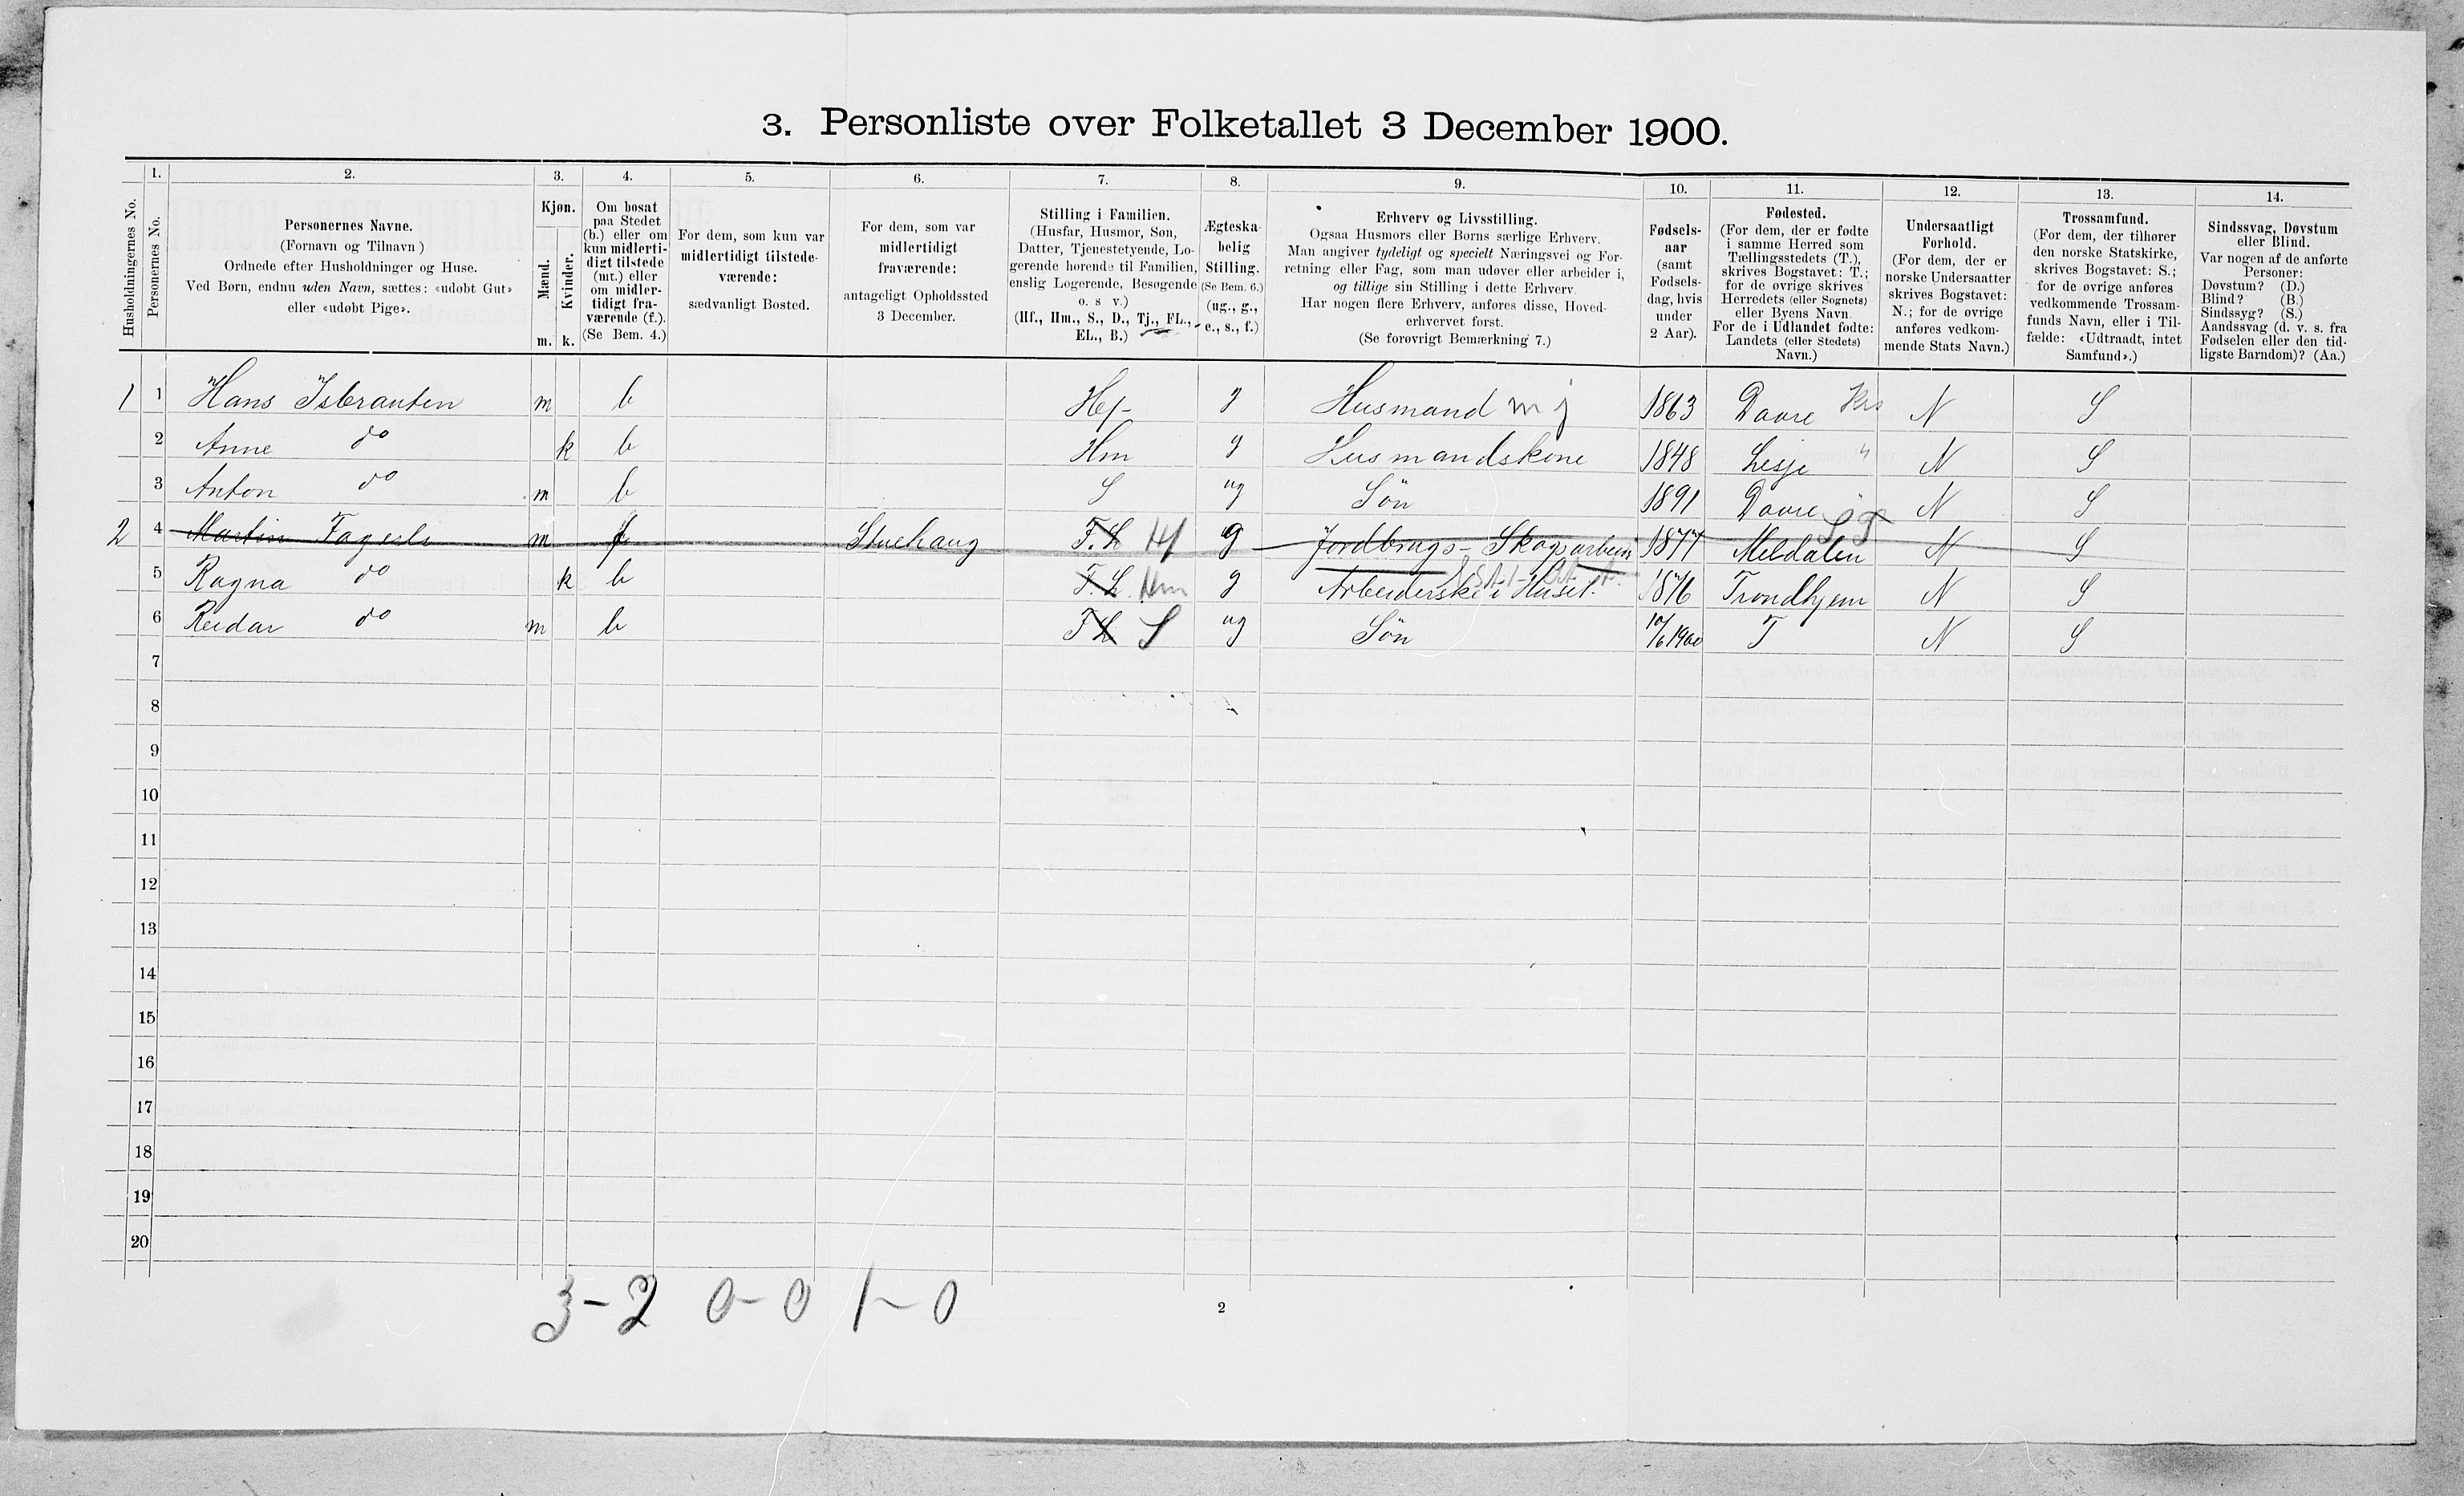 3. Personliste over Folketallet 3 December 1900.
1. 2. 3. 4. 5. 6. 7. 8. 9. 10. 11. 12. 13. 14.
Husholdningernes No.
Personernes No.
Personernes Navne.
(Fornavn og Tilnavn)
Ordnede efter Husholdninger og Huse.
Ved Børn, endnu uden Navn, sættes: «udøbt Gut»
eller «udøbt Pige».
Kjøn.
Mænd.
Kvinder.
m. k.
Om bosat
paa Stedet
(b.) eller om
kun midlerti-
digt tilstede
(mt.) eller
om midler-
tidigt fra-
værende (f.).
(Se Bem. 4.)
For dem, som kun var
midlertidigt tilstede-
værende:
sædvanligt Bosted.
For dem, som var
midlertidigt
fraværende:
antageligt Opholdssted
3 December.
Stilling i Familien.
(Husfar, Husmor, Søn,
Datter, Tjenestetyende, Lo-
gerende hørende til Familien,
enslig Logerende, Besøgende
o. s v.)
(Hf., Hm., S., D., Tj., FL.,
EL., B.)
Ægteska-
belig
Stilling.
(Se Bem. 6.)
(ug., g.,
e., s., f.)
Erhverv og Livsstilling.
Ogsaa Husmors eller Børns særlige Erhverv.
Man angiver tydeligt og specielt Næringsvei og For-
retning eller Fag, som man udøver eller arbeider i,
og tillige sin Stilling i dette Erhverv.
Har nogen flere Erhverv, anføres disse, Hoved-
erhvervet først.
(Se forøvrigt Bemærkning 7.)
Fødsels-
aar
(samt
Fødsels-
dag, hvis
under
2 Aar).
Fødested.
(For dem, der er fødte
i samme Herred som
Tællingsstedets (T.),
skrives Bogstavet: T.;
for de øvrige skrives
Herredets (eller Sognets)
eller Byens Navn.
For de i Udlandet fødte:
Landets (eller Stedets)
Navn.)
Undersaatligt
Forhold.
(For dem, der er
norske Undersaatter
skrives Bogstavet:
N.; for de øvrige
anføres vedkom-
mende Stats Navn.)
Trossamfund.
(For dem, der tilhører
den norske Statskirke,
skrives Bogstavet: S.;
for de øvrige anføres
vedkommende Trossam-
funds Navn, eller i Til-
fælde: «Udtraadt, intet
Samfund».)
Sindssvag, Døvstum
eller Blind.
Var nogen af de anførte
Personer:
Døvstum? (D.)
Blind? (B.)
Sindssyg? (S.)
Aandssvag (d. v. s. fra
Fødselen eller den tid-
ligste Barndom)? (Aa.)
1 1 Hans Isbrauten m b Hf- g Husmand m j 1863 Dovre N S
2 Anne do k b Hm g Husmandskone 1848 Lesje " N S
3 Anton do m b S ug Søn 1891 Dovre N S
2 4 Martin Fagerli m f Stuehaug F.L Hf g Jordbrugs- Skogsarbeid 1877 Meldalen N S
5 Ragna do k b F.L. Hm g Arbeiderske i Huset. 1876 Trondhjem N S
6 Reidar do m b FL S ug Søn 10/6 1900 T N S
7
8
9
10
11
12
13
14
15
16
17
18
19
20
3-2 0-0 1-0
2